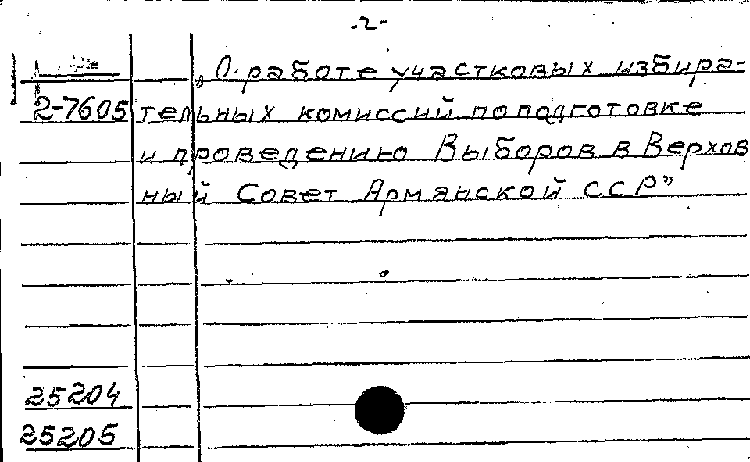 -2-
„О работе участковых избира-
2-7605 тельных комиссий по подготовке
и проведению Выборов в Верхов
ный Совет Армянской ССР”
25204
25205